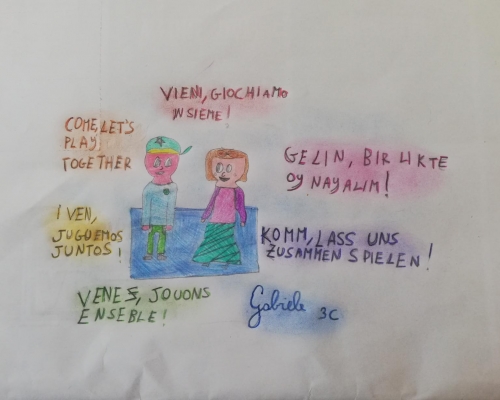 VIENI, GIOCHIAMO
INSIEME!
COME, LET'S
PLAY
TOGETHER
GELIN, BIR LIKTE
OY NAYALIM!
¡VEN,
JUGUEMOS
JUNTOS!
KOMM, LASS UNS
ZUSAMMEN SPIELEN!
VENEZ, JOUONS
ENSEBLE!
Gabriele 3C